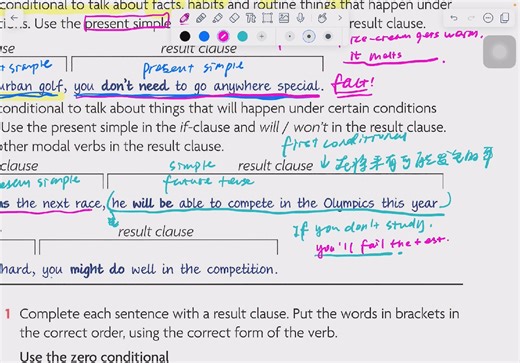 conditional to talk about facts, habits and routine things that happen under
ions. Use the present simple
result clause.
ice-cream gets warm,
it melts
result clause
simple
present simple
urban golf, you don't need to go anywhere special.
fact!
conditional to talk about things that will happen under certain conditions
Use the present simple in the if-clause and will / won't in the result clause.
other modal verbs in the result clause.
first conditional
clause
simple
result clause
↓ 比将来有可能发生的事
simple
future tense
s the next race, (he will be able to compete in the Olympics this year)
If you don't study,
result clause
you'll fail the test.
hard, you might do well in the competition.
1 Complete each sentence with a result clause. Put the words in brackets
in the correct order, using the correct form of the verb.
Use the zero conditional